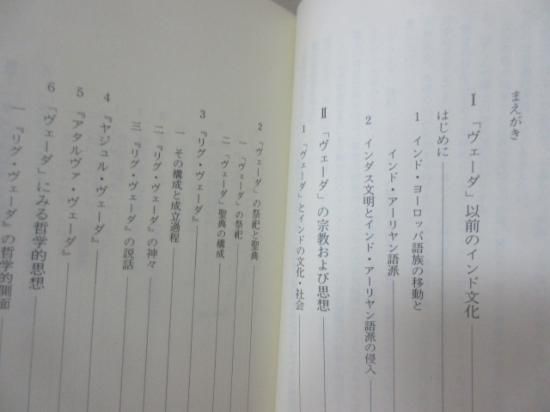 まえがき
Ⅰ 「ヴェーダ」以前のインド文化
はじめに
1 インド・ヨーロッパ語族の移動と
インド・アーリヤン語派
2 インダス文明とインド・アーリヤン語派の侵入
Ⅱ 「ヴェーダ」の宗教および思想
1 「ヴェーダ」とインドの文化・社会
2 「ヴェーダ」の祭祀と聖典
一 「ヴェーダ」の祭祀
二 「ヴェーダ」聖典の構成
3 『リグ・ヴェーダ』
一 その構成と成立過程
二 『リグ・ヴェーダ』の神々
三 『リグ・ヴェーダ』の説話
4 『ヤジュル・ヴェーダ』
5 『アタルヴァ・ヴェーダ』
6 「ヴェーダ」にみる哲学的思想
一 『リグ・ヴェーダ』の哲学的側面